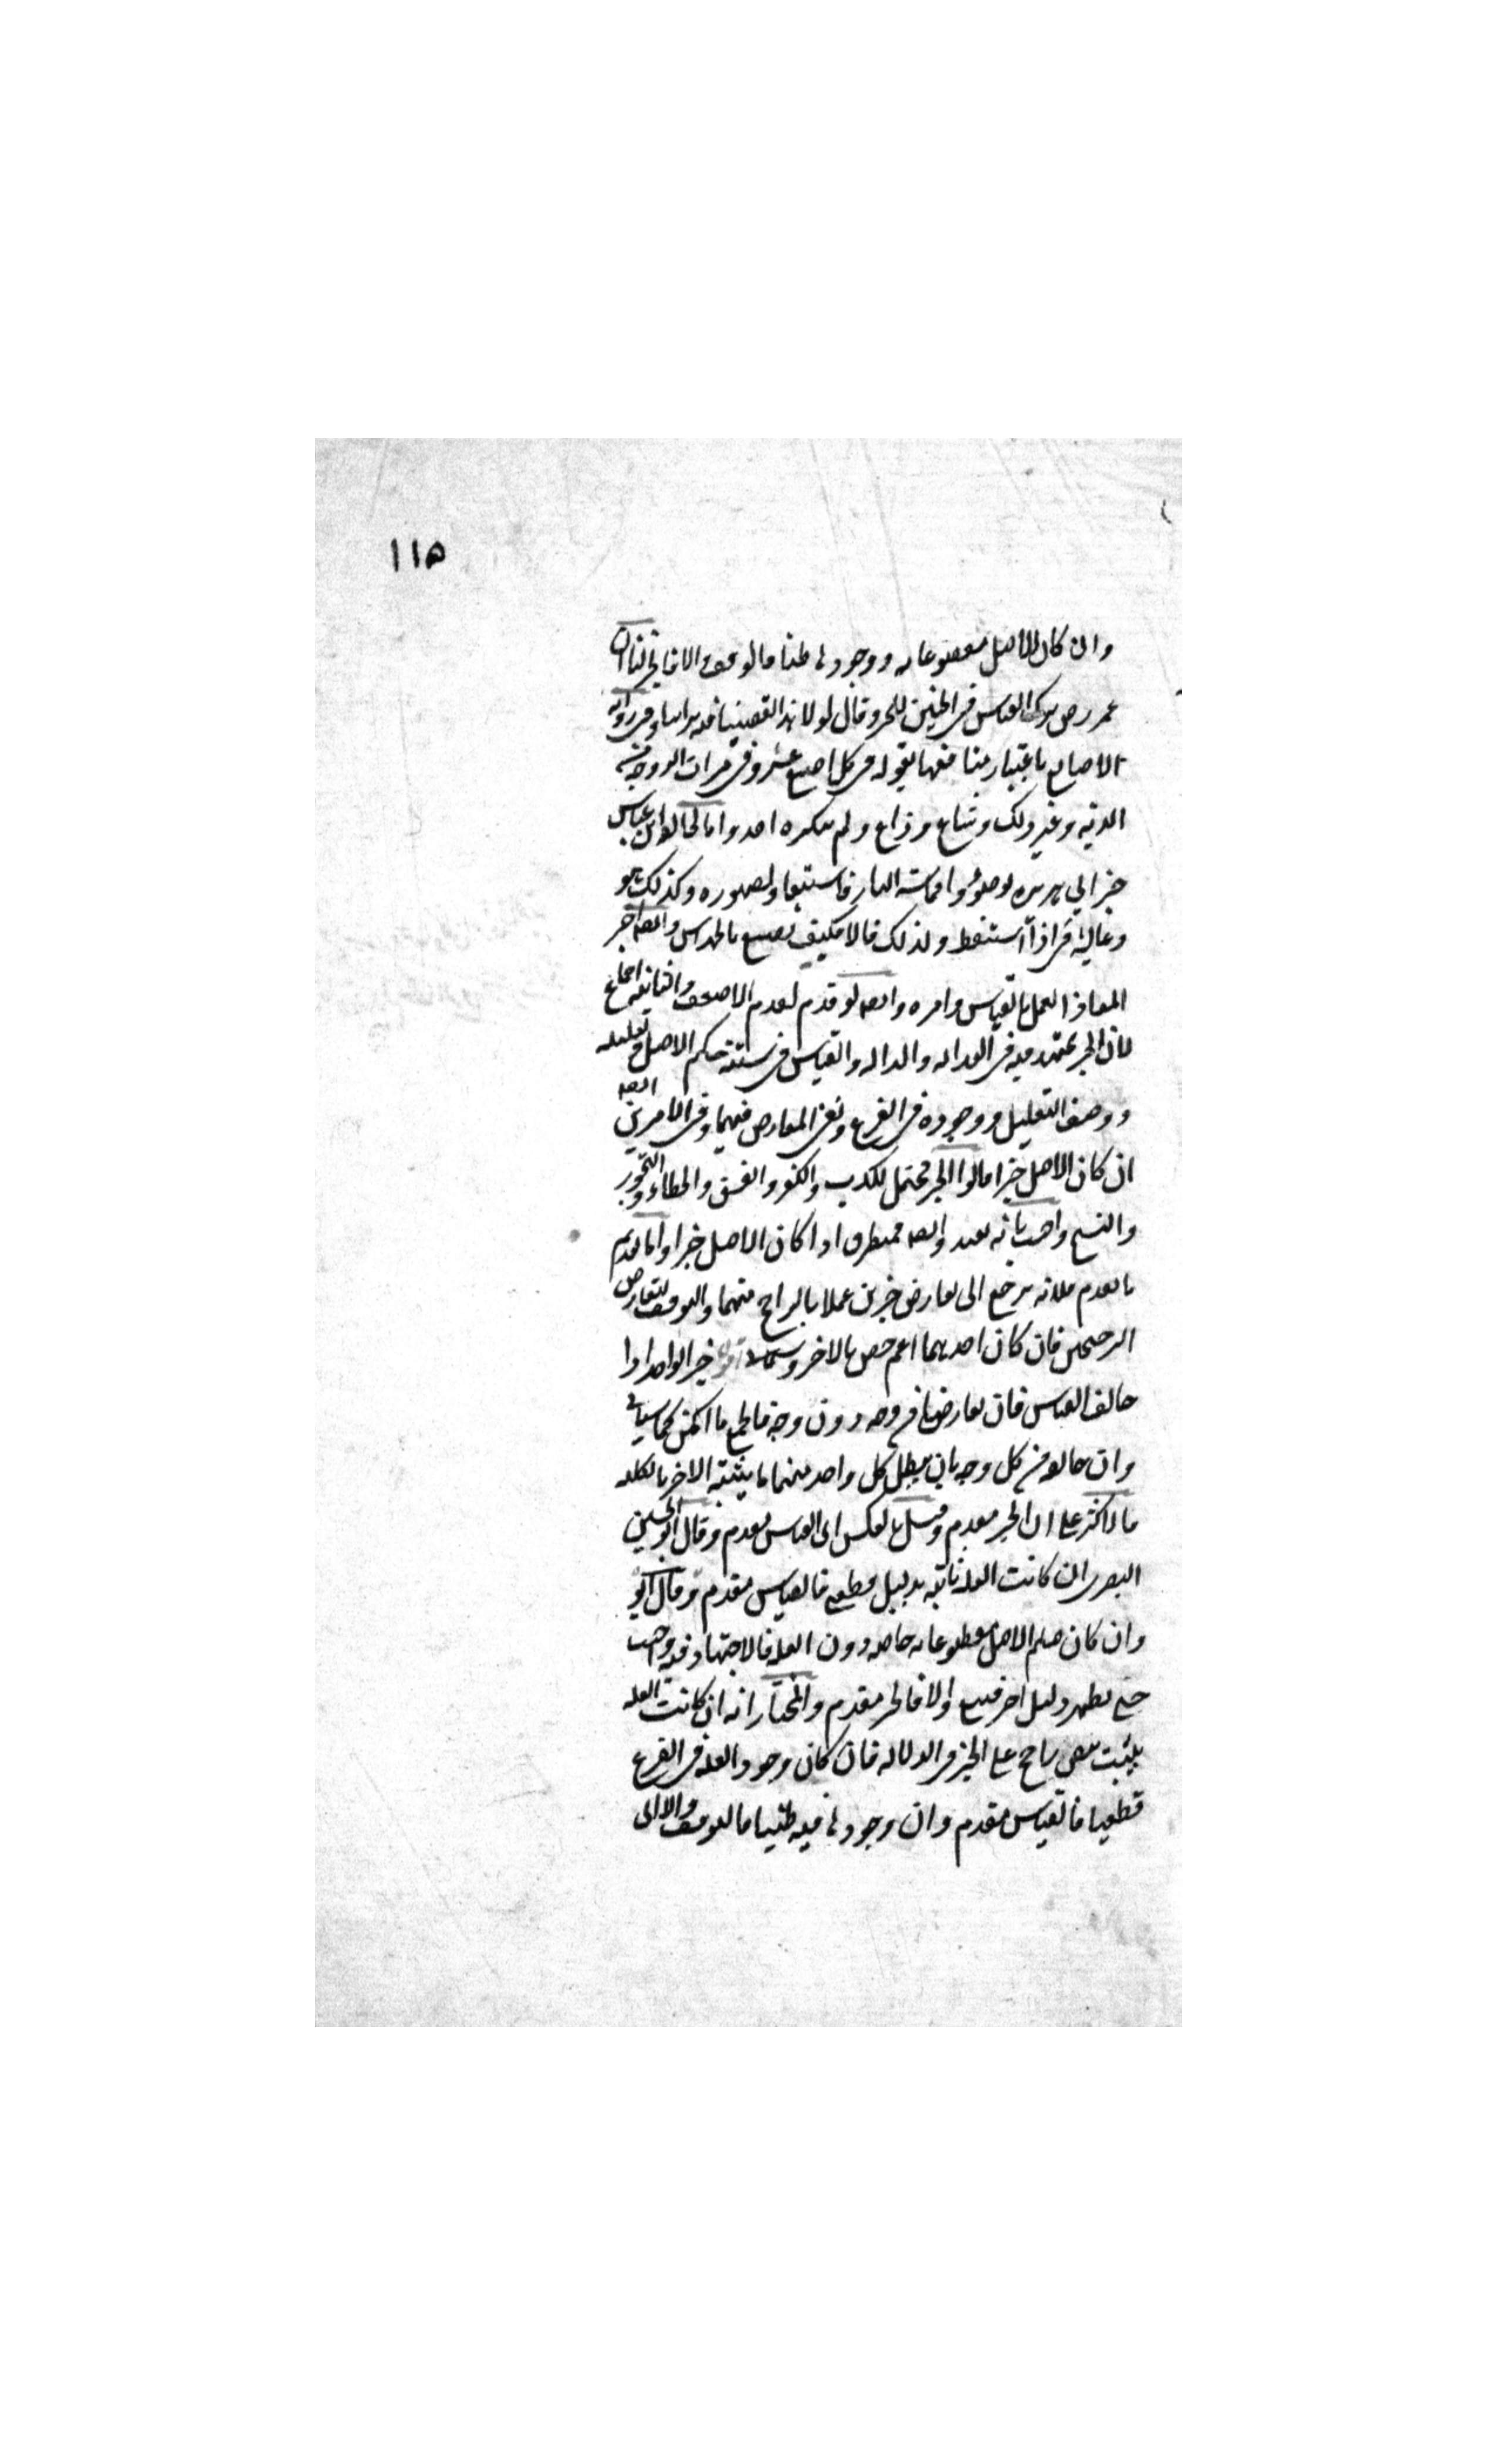 ١١٥
وان كان الاصل مقطوعا به ووجودها ظنا فالوقف والا فالخبر لنا ان
عمر رض ترك القياس في الجنين للخبر وقال لولا هذا لقضينا فيه براينا وفي دية
الاصابع باعتبار منافعها بقوله في كل اصبع عشر وفي ميراث الزوجة من
الدية وغير ذلك وشاع وذاع ولم ينكره احد واما مخالفة ابن عباس
خبر ابي هريره توضؤوا مما مسته النار فاستبعاد لظهوره وكذلك هو
وعايشة في اذا استيقظ ولذلك قالا فكيف نصنع بالمهراس وايضا اخر
المعاذ العمل بالقياس وامره وايضا لو قدم لقدم الاضعف والثانية اجماع
لان الخبر يجتهد فيه في العداله والدلاله والقياس في ستة حكم الاصل وتعليله
ووصف التعليل ووجوده في الفرع ونفي المعارض فيهما وفي الامرين ايضا
ان كان الاصل خبرا قالوا الخبر محتمل للكذب والكفر والفسق والخطاء والتجوز
والنسخ واجيب بانه بعيد وايضا فمتطرق اذا كان الاصل خبرا واما تقديم
ما تقدم فلانه يرجع الى تعارض خبرين عملا بالراجح منهما والوقف لتعارض
الترجيحين فان كان احدهما اعم خص بالاخر وسياتي خبر الواحد اذا
خالف القياس فان تعارضا من وجه دون وجه فالجمع ما امكن كما سياتي
وان خالفه من كل وجه بان يبطل كل واحد منهما ما يثبته الاخر بالكليه
فالاكثر على ان الخبر مقدم وقيل بالعكس اي القياس مقدم وقال ابو الحسين
البصري ان كانت العلة ثابته بدليل قطعي فالقياس مقدم وقال ايضا
وان كان حكم الاصل مقطوعا به خاصه دون العله فالاجتهاد فيه واجب
حتى يظهر دليل احدهما فيتبع والا فالخبر مقدم والمختار انه ان كانت العله
يثبت بنص راجح على الخبر في الدلاله فان كان وجود العله في الفرع
قطعيا فالقياس مقدم وان وجودها فيه ظنيا فالوقف والا اي